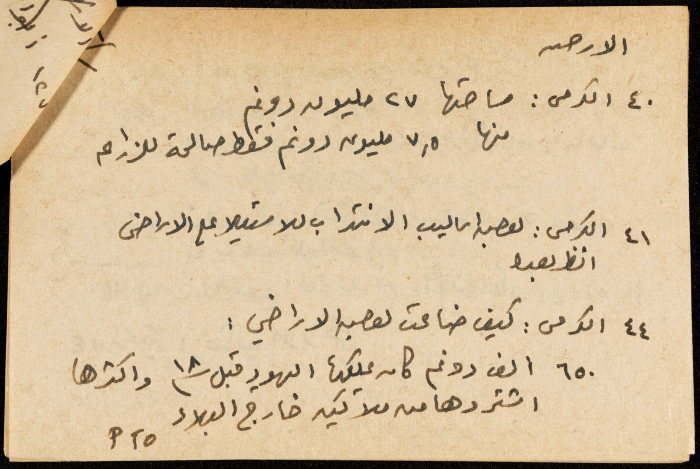 الارض
٤٠ الكرمى : مساحتها ٢٧ مليون دونم
منها ٧,٥ مليون دونم فقط صالحة للزراعه
٤١ الكرمى : بعض اساليب الانتداب للاستيلاء على الاراضي
انظر بعده
٤٤ الكرمى : كيف ضاعت بعض الاراضي :
٦٥٠ الف دونم كان يملكها اليهود قبل ١٨ واكثرها
اشتروها من ملاكين خارج البلاد
P ٢٥